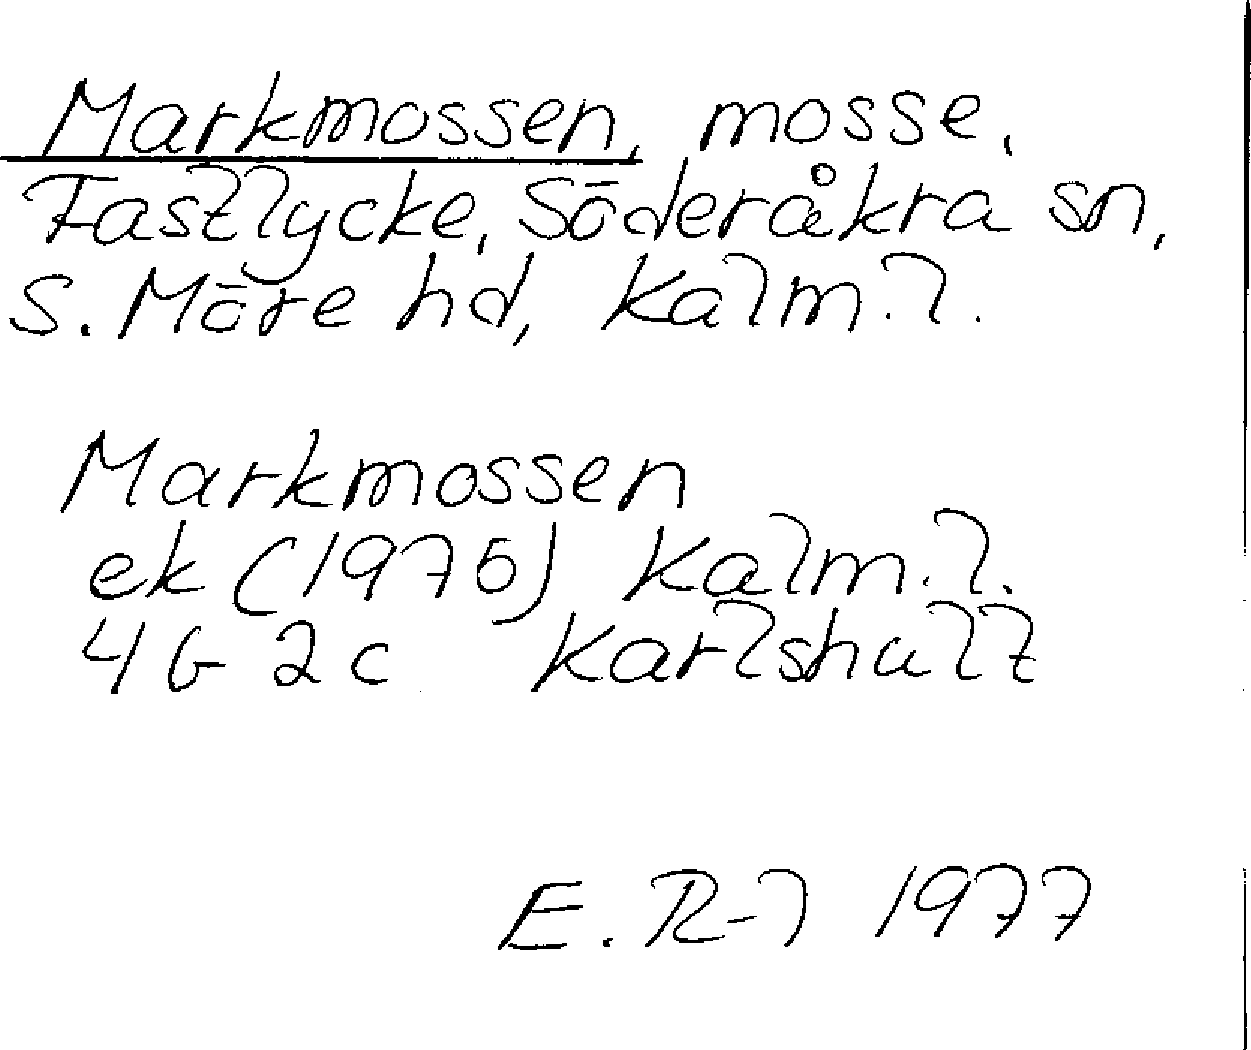 Markmossen, mosse,
Fastlycke, Söderåkra sn,
S. Möre hd, Kalm. l.
Markmossen
ek (1976) Kalm. l.
4G 2c Karlshult
E. R-l 1977